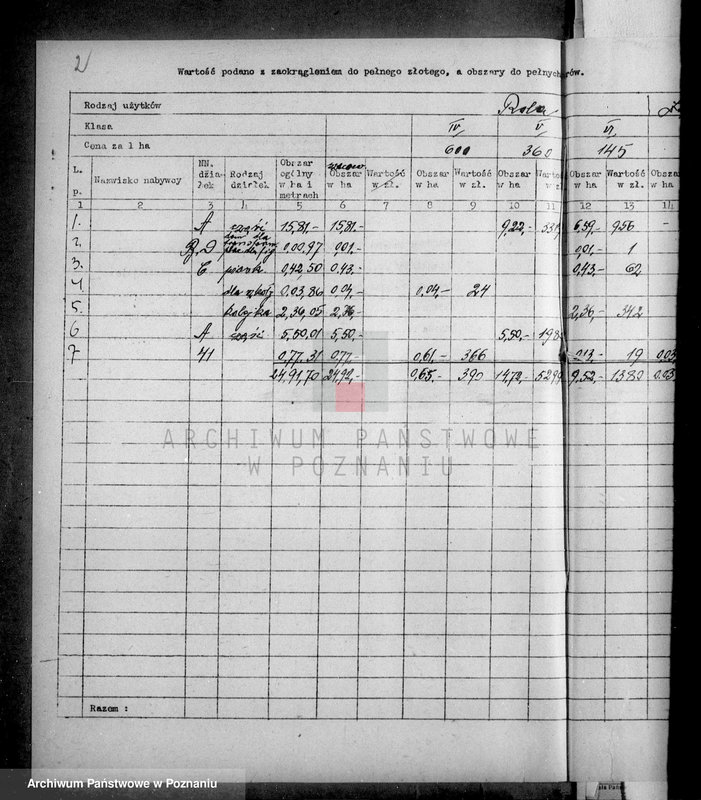 2
Wartość podano z zaokrągleniem do pełnego złotego, a obszary do pełnych arów.
Rodzaj użytków Rola
Klasa IV V VI
Cena za 1 ha 600 360 145
L. p. Nazwisko nabywcy NN. dzia- łek Rodzaj działek Obszar ogólny w ha i metrach Obszar w ha Wartość w zł. Obszar w ha Wartość w zł. Obszar w ha Wartość w zł. Obszar w ha Wartość w zł. Obszar w ha
1 2 3 4 5 6 7 8 9 10 11 12 13 14
1. A części 15.81,- 15.81.- 9,22,- 6.59.- 956
2. 0.00,97 0,01.- 0,01.- 1
3. C piask. 0.42,50 0,43.- 0,43.- 62
4. dla szkoły 0.03,86 0,04.- 0,04.- 24
5. Kolejka 2,36,05 2,36,- 2,36,- 342
6 A części 5,50,01 5,50,- 5,50,- 198
7 41 0,77.31 0,77.- 0,61.- 366 0,13.- 19 0,03
24,91,70 24,92,- 0,65.- 390 14,72,- 5299 9,52.- 1380 0,03
ARCHIWUM PAŃSTWOWE
W POZNANIU
Razem :
Archiwum Państwowe w Poznaniu